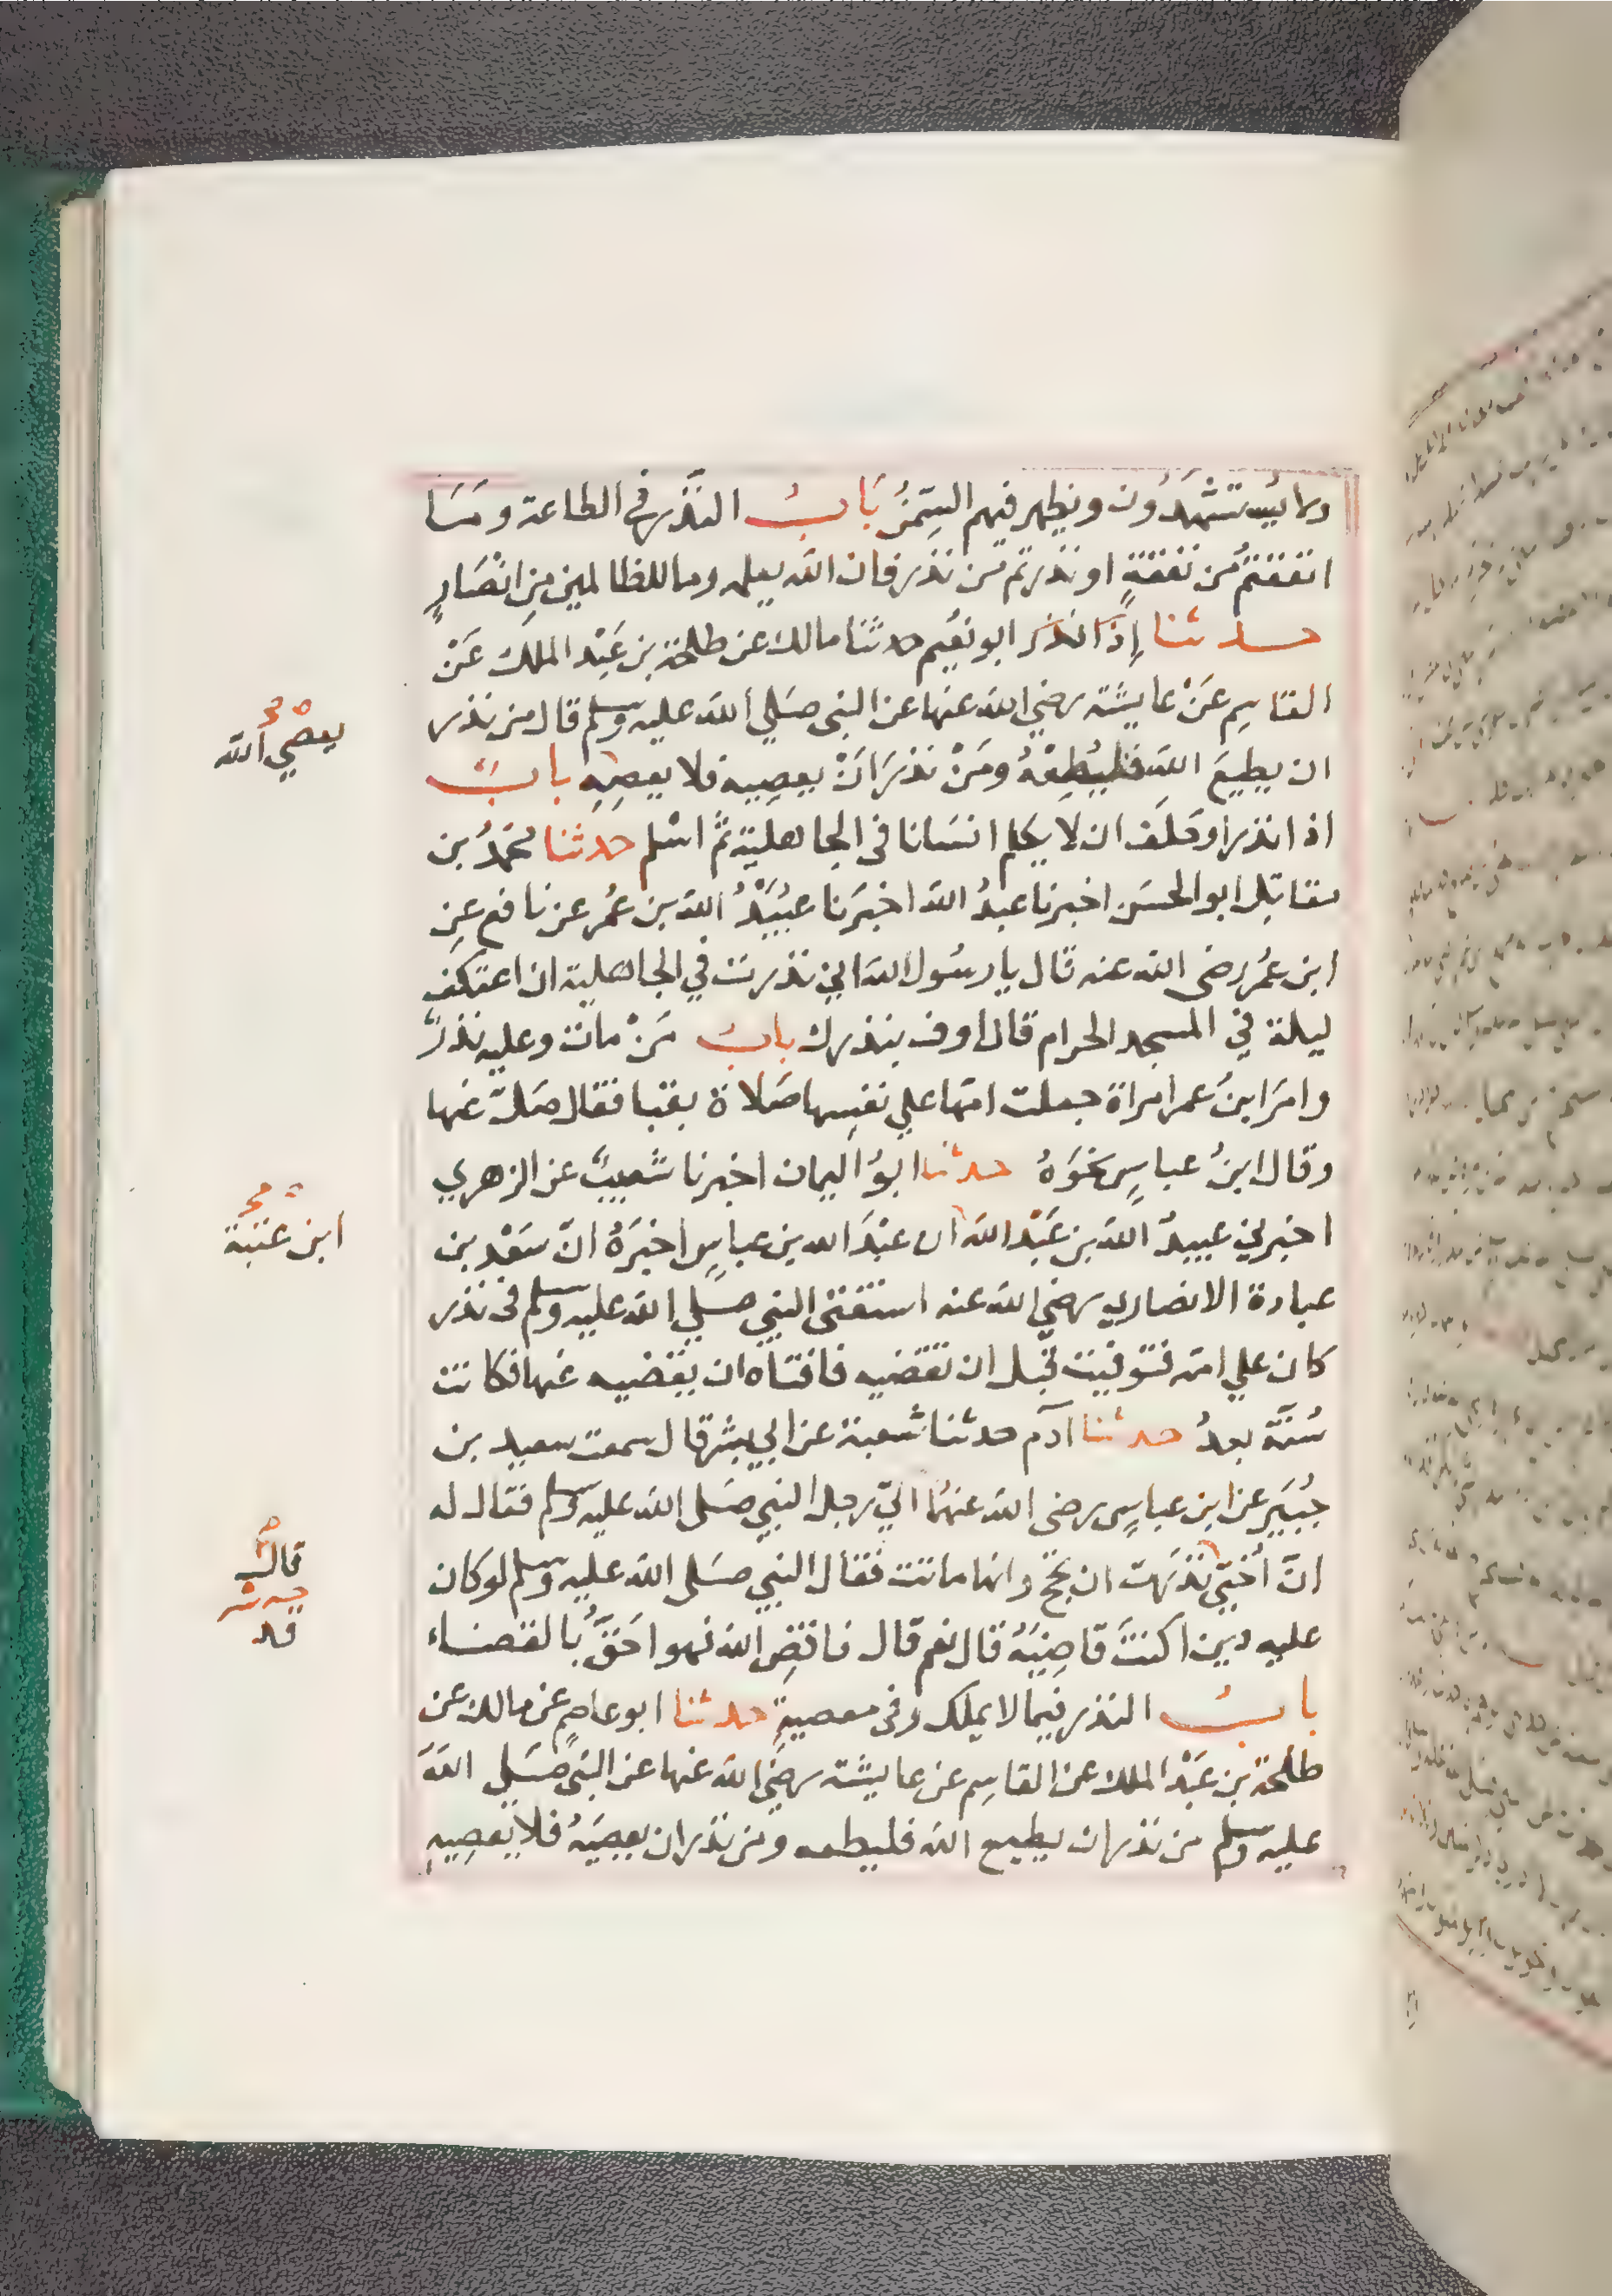 ولا يُستشهَدُون ويظهر فيهم السِّمَنُ بَابُ النَّذْر في الطاعة ومَا
انفقتمُ من نفقةٍ او نذرتم من نذر فان الله يعلمه وما للظالمين مِن انصَارٍ
حدثنا ابو نعيم حدثنا مالك عن طلحة بن عَبْد الملك عَنْ
القاسِم عَنْ عايشة رضي الله عنها عن النبي صَلي الله عليه وسلم قال من نذر
ان يطيعَ الله فليُطِعْهُ ومَنْ نذرَ انْ يعصِيه فلا يعصِهِ بابٌ
اذا نذر او حَلَف ان لا يكلم انسَانا في الجاهلية ثمّ اسْلم حدثنا محمدُ بن
مقاتِل ابو الحسَن اخبرنا عبدُ الله اخبَرنا عُبَيْدُ الله بن عُمر عن نافع عنِ
ابن عمُر رضى الله عنه قال يا رسُول الله اني نذرت في الجاهلية ان اعتكف
ليلة في المسجد الحرام قال اوف بنذرك بابُ مَنْ مات وعليه نذرٌ
وامرَ ابنُ عمر امراة جعلت امّها علي نفسِها صَلاة بقبا فقال صَلّ عنها
وقال ابنُ عباسٍ نحوَهُ حدثنا ابوُ اليمان اخبرنا شعيبٌ عن الزهري
اخبرني عبيدُ الله بن عَبْد الله ان عبْدَ الله بن عباسٍ اخبَرهُ انّ سَعْد بن
عبادة الانصاري رضي الله عنه استفتى النبي صلي الله عليه وسلم في نذر
كان علي امّه فتوفيت قبل ان تقضيه فافتاه ان يقضيه عنها فكانت
سُنَّة بعدُ حدثنا آدم حدثنا شعبة عن ابي بشر قال سمعت سعيد بن
جُبَير عن ابن عباسٍ رضى الله عنهُما اتي رجل النبي صَلى الله عليه وسلم فقال له
انّ اُختي نذَرَت ان تحجّ وانها ماتت فقال النبي صَلى الله عليه وسلم لو كان
عليه دين اكنتَ قاضِيَهُ قال نعم قال فاقضِ الله فهو احَقُّ بالقضاء
بابُ النذر فيما لا يملك وفي معصيةٍ حدثنا ابو عاصم عن مالك عن
طلحة بن عبْد الملك عن القاسِم عن عايشة رضي الله عنها عن النبي صَلي الله
عليه وسلم من نذر ان يطيع الله فليطعه ومن نذر ان يعصيَهُ فلا يعصِيهِ
يعصي الله
ابن عتبة
قال
قد